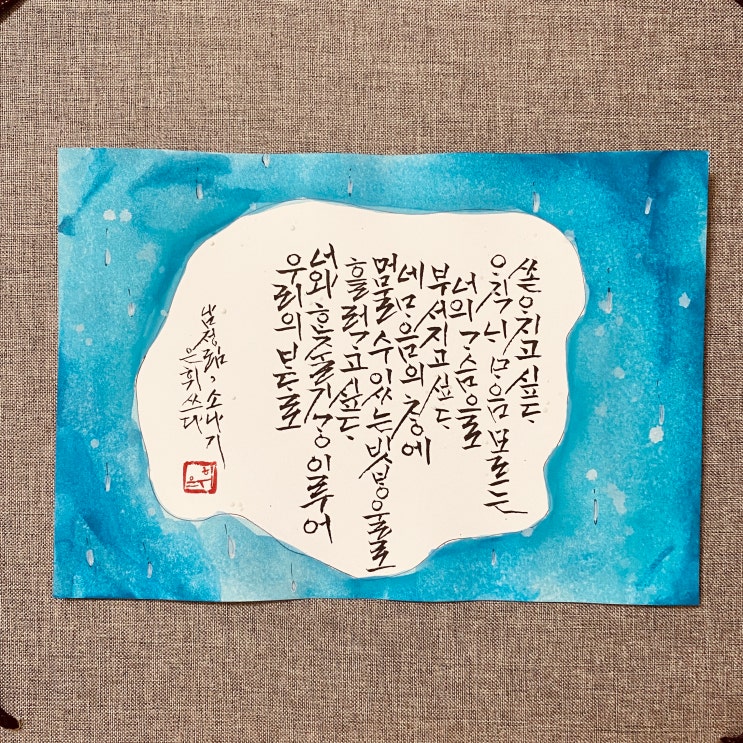 쏟아지고 싶다
아직 내 마음 모르는
너의 가슴으로
부서지고 싶다
네 마음의 창에
머물 수 있는 빗방울로
흘러가고 싶다
너와 한 줄기 강 이루어
우리의 바다로
남정림, 소나기
은휘 쓰다